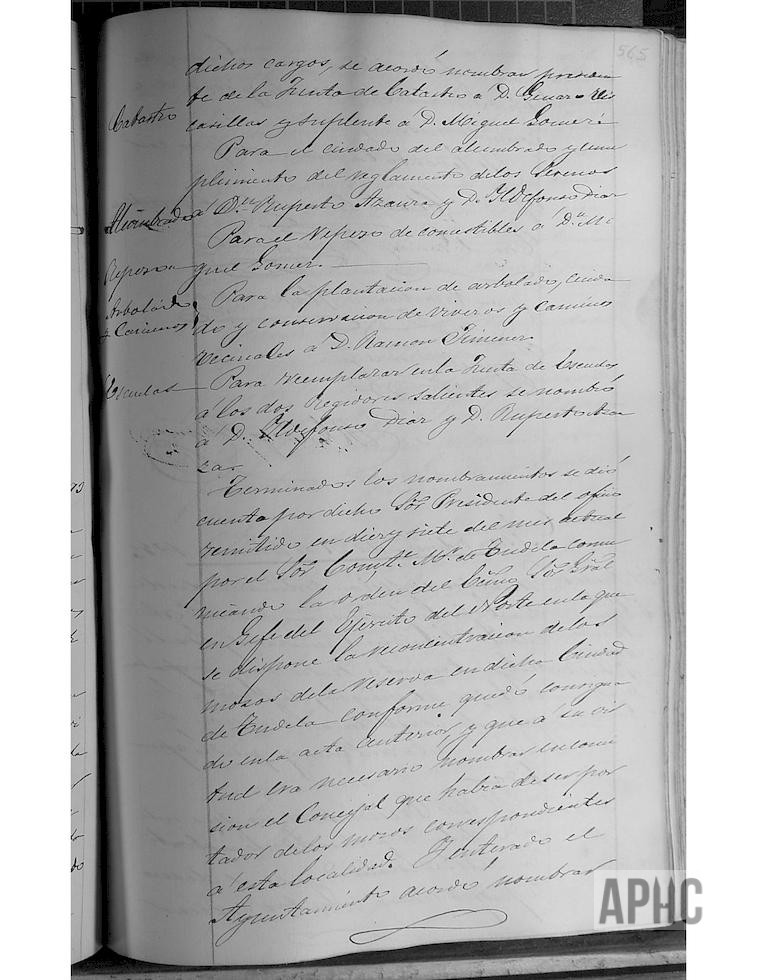 565
dichos cargos, se acordó nombrar presiden
te de la Junta de Catastro a D. Genaro
Catastro
casillas y suplente á D. Miguel Gomeri
Para el cuidado del alumbrado y cum
plimiento del reglamento delos Serenos
Alumbrado
á D.n Ruperto Azanza y D. Yldefonso Diaz
Para el repeso de comestibles á D.n Mi
Repeso
guel Gomer.
Arbolado
y Caminos
Para la plantacion de arbolado, cuida
do y conservacion de viveros y caminos
vecinales á D. Ramon Jimenez
Escuelas
Para reemplazar enla Junta de Escuelas
a los dos Regidores salientes se nombró
á D. Yldefonso Diaz y D. Ruperto Azan
za.
Terminados los nombramientos se dió
cuenta por dicho Sor. Presidente del oficio
remitido en diez y siete del mes actual
por el Sor. Com.te Mr. de Tudela comu
nicando la orden del Exmo. Sor. Gral
en Gefe del Ejército del Norte enla que
se dispone la reconcentracion delos
mozos dela reserva en dicha Ciudad
de Tudela conforme quedó consigna
do enla acta anterior y que á su vir
tud era necesario nombrar en comi
sion el Concejal que habia de ser por
tador delos mozos correspondientes
á esta localidad. Y enterado el
Ayuntamiento acordó nombrar
APHC